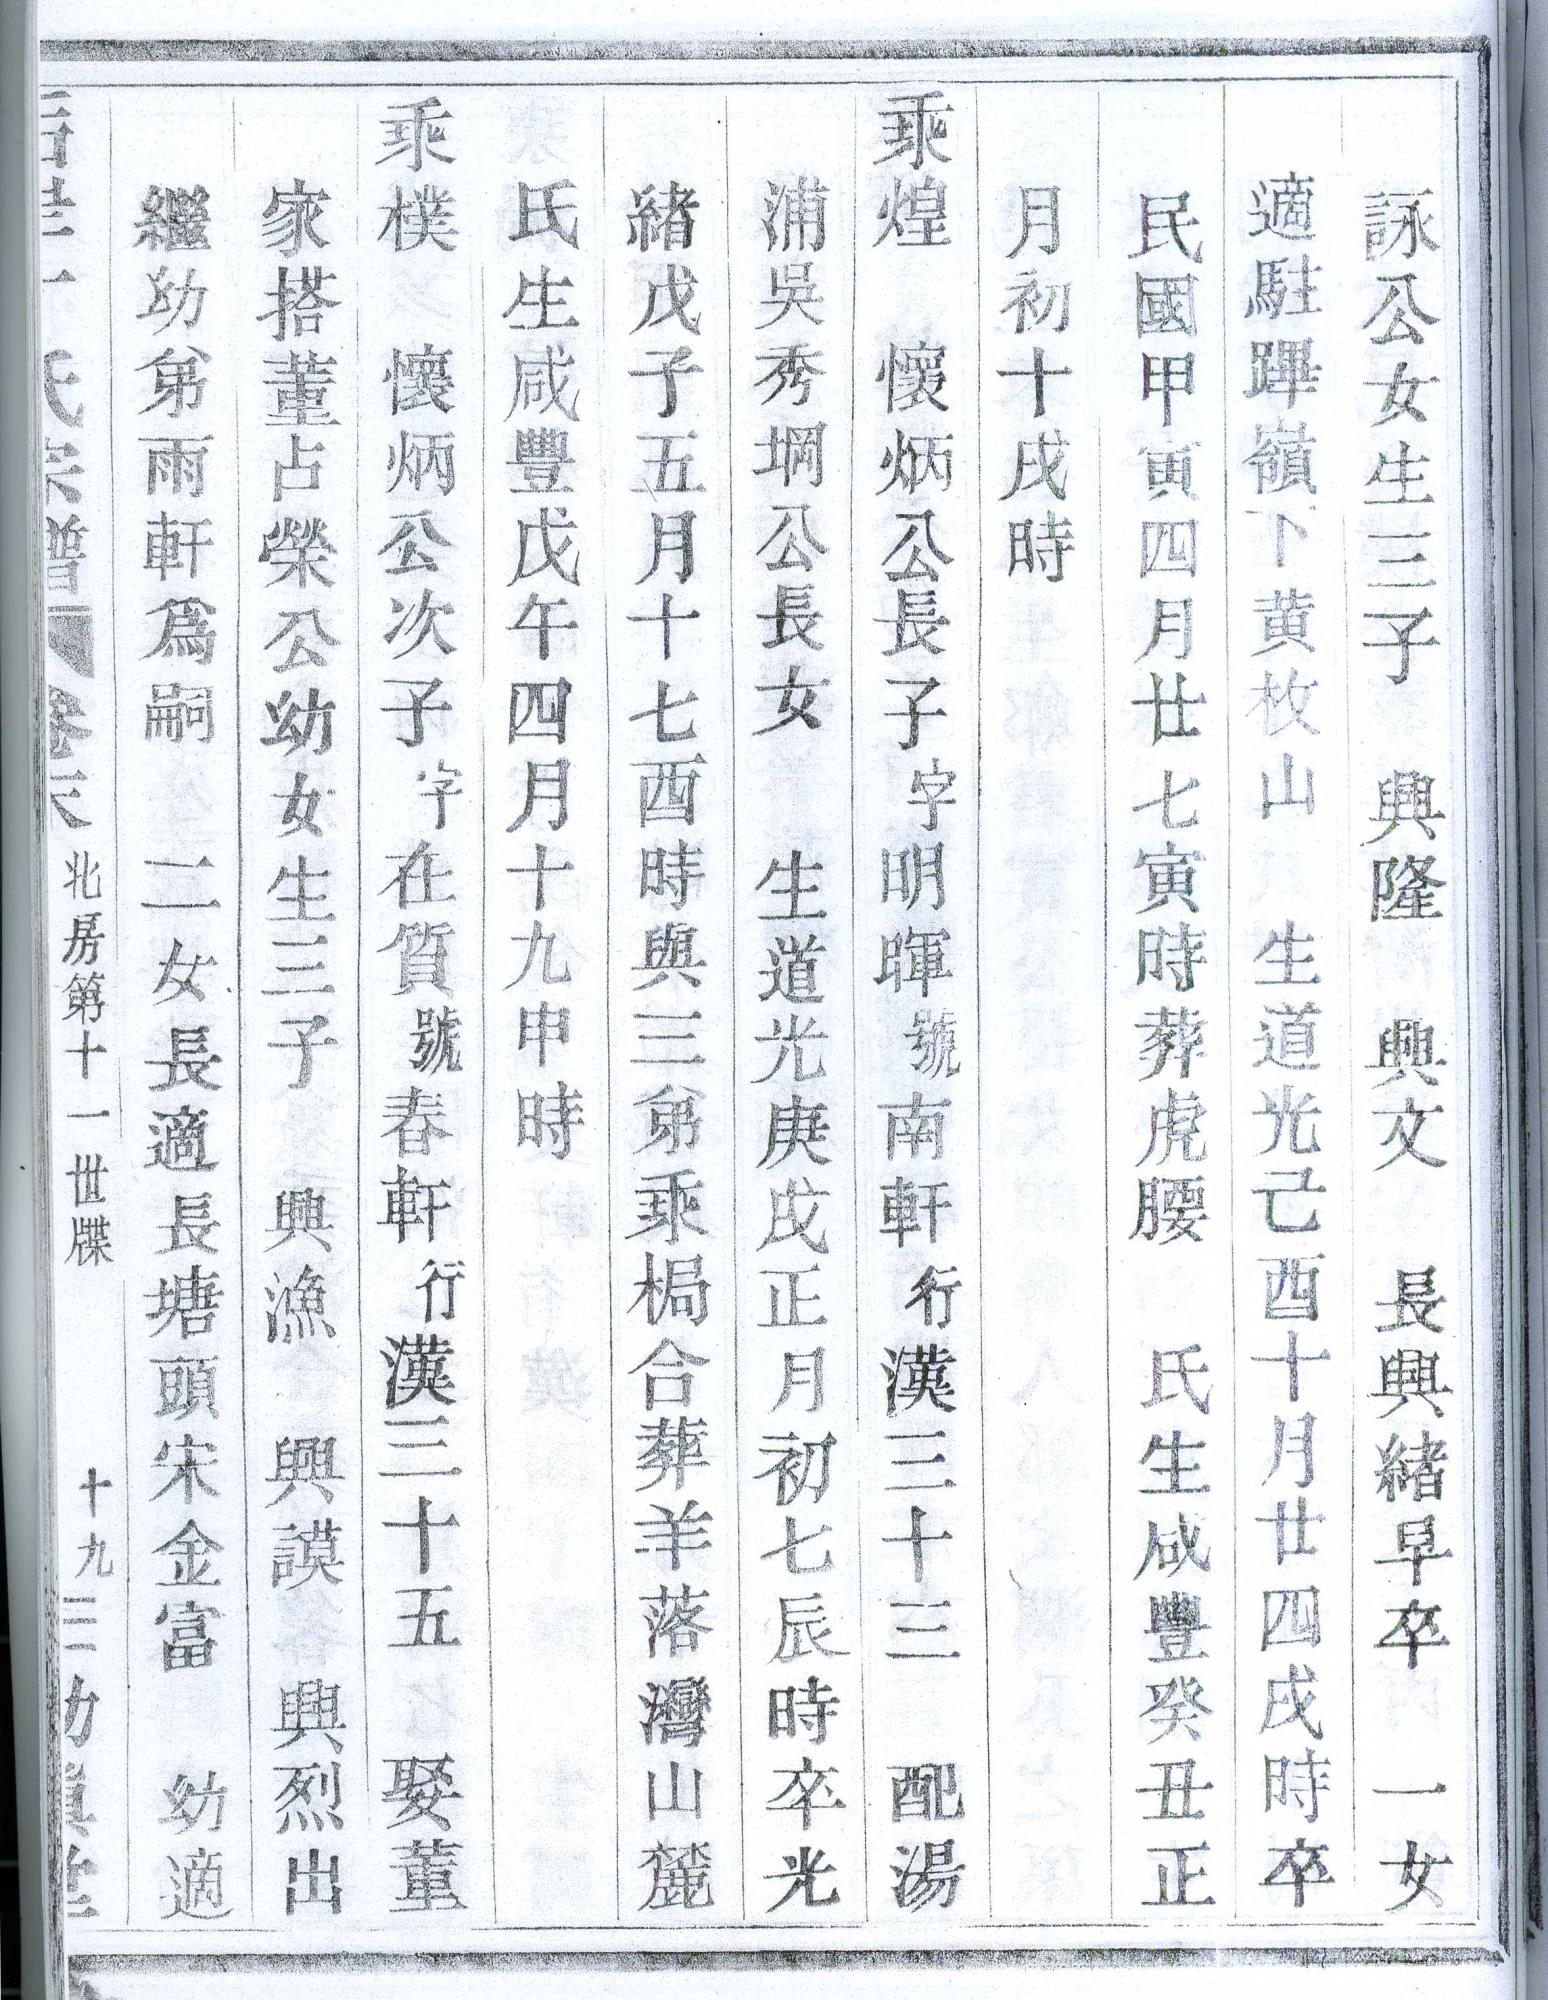 詠公女生三子　興隆　興文　長興緒早卒　一女
適駐蹕嶺下黄枚山　生道光己酉十月廿四戌時卒
民國甲寅四月廿七寅時葬虎腰　氏生咸豐癸丑正
月初十戌時
乘煌　懷炳公長子字明暉號南軒行漢三十三　配湯
浦吳秀堈公長女　生道光庚戌正月初七辰時卒光
緒戊子五月十七酉時與三弟乘梮合葬羊落灣山麓
氏生咸豐戊午四月十九申時
乘樸　懷炳公次子字在質號春軒行漢三十五　娶董
家搭董占榮公幼女生三子　興漁　興謨　興烈出
繼幼弟雨軒爲嗣　二女長適長塘頭宋金富　幼適
氏宗譜　卷末　北房第十一世牒　十九